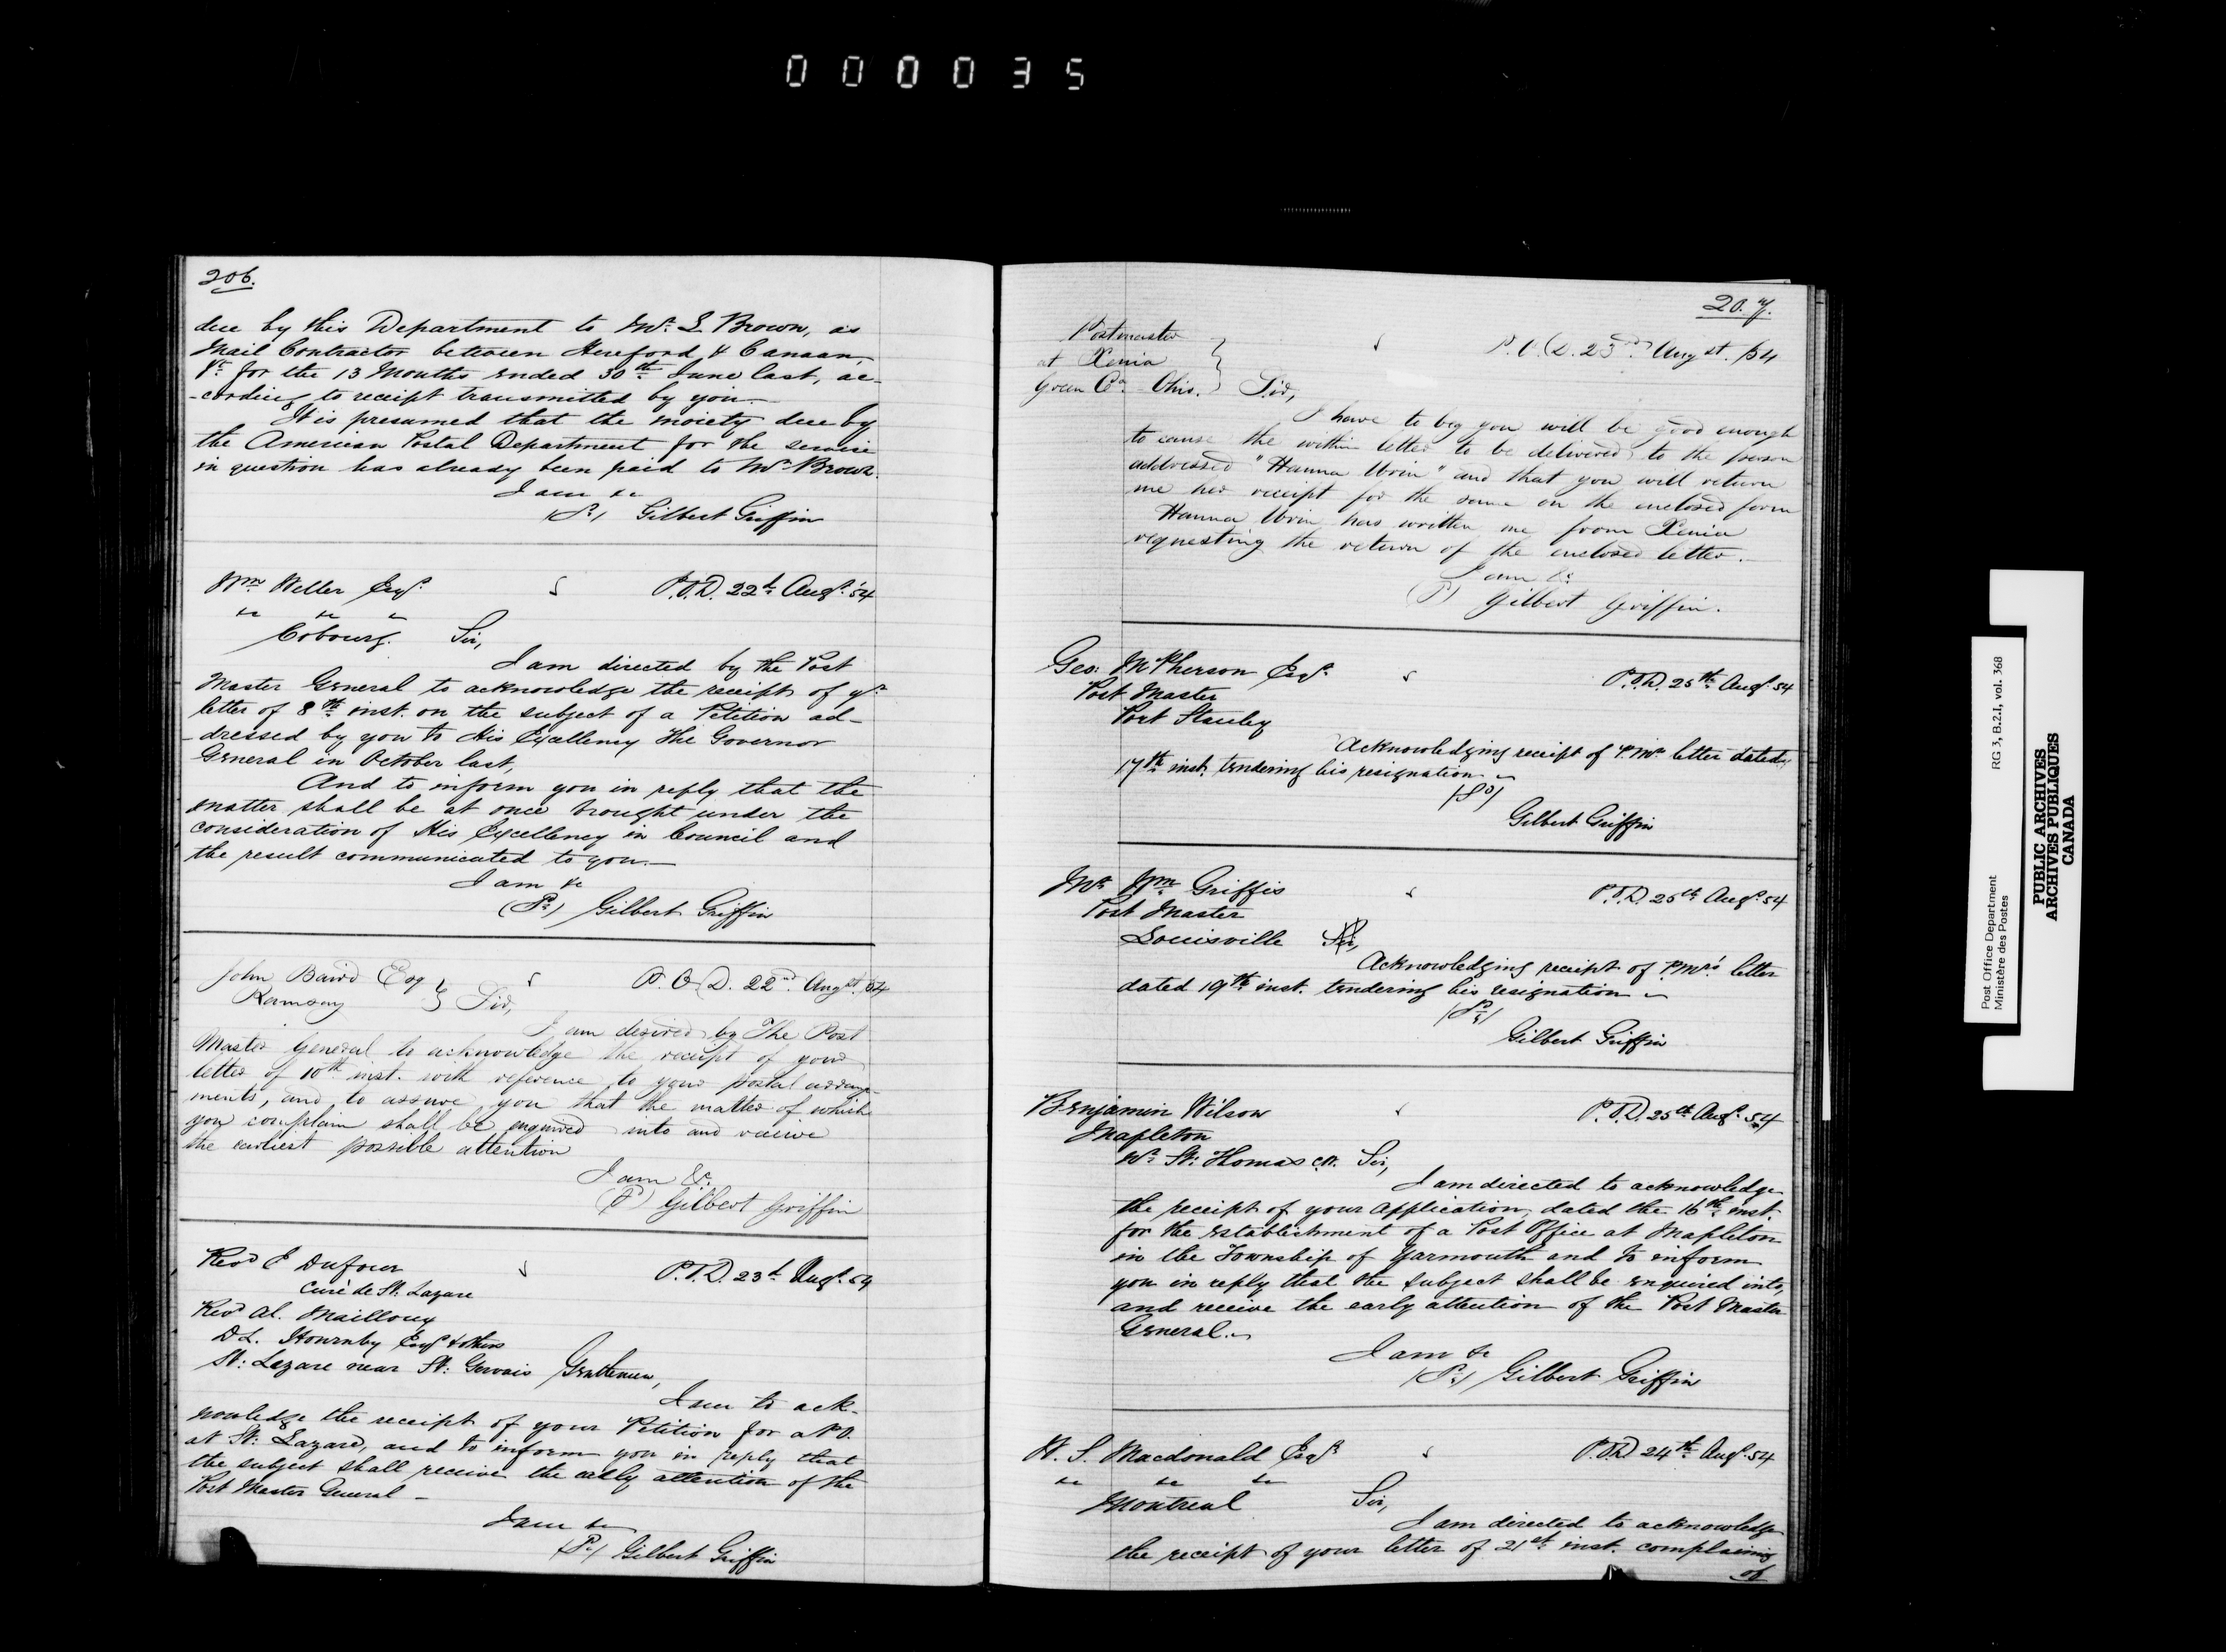 000035
206.
due by this Department to Mr. S. Brown, as
Mail Contractor between Hereford & Canaan,
Vt. for the 13 Months ended 30th June last, ac-
-cording to receipt transmitted by you.—
It is presumed that the moiety due by
the American Postal Department for the service
in question has already been paid to Mr. Brown.
I am &c
Gilbert Griffin
Wm Weller Esqr.
P.O.D. 22d Augt. '54
&c &c &c
Cobourg. Sir,
I am directed by the Post
Master General to acknowledge the receipt of yr.
letter of 8th inst. on the subject of a Petition ad-
-dressed by you to His Excellency The Governor
General in October last,
And to inform you in reply that the
matter shall be at once brought under the
consideration of His Excellency in Council and
the result communicated to you.—
I am &c
(Sd) Gilbert Griffin
John Baird Esq
P.O.D. 22nd Augst. 54
Ramsay Sir,
I am desired by The Post
Master General to acknowledge the receipt of your
letter of 10th inst. with reference to your postal arrange-
ments, and to assure you that the matter of which
you complain shall be enquired into and receive
the earliest possible attention
I am &c.
(Sd) Gilbert Griffin
Revd Dufour
P.O.D. 23d Augt. 54
Curé de St. Lazare
Revd Al. Mailloux
D L. Hournby Esqr & others
St: Lazare near St: Gervais Gentlemen,
I am to ack-
nowledge the receipt of your Petition for a P.O.
at St: Lazare, and to inform you in reply that
the subject shall receive the early attention of the
Post Master General —
I am &c
(Sd) Gilbert Griffin
207.
Postmaster
at Xenia
P.O.D. 23rd Augst. /54
Green Co. Ohio. Sir,
I have to beg you will be good enough
to cause the within letter to be delivered to the person
addressed "Hanna Uvin" and that you will return
me her receipt for the same on the enclosed form
Hanna Uvin has written me from Xenia
requesting the return of the enclosed letter.—
I am &c
(Sd) Gilbert Griffin.
Geo: McPherson Esqr.
P.O.D. 25th Augt. 54
Post Master
Port Stanley
Acknowledging receipt of P.Mr. letter dated
17th inst. tendering his resignation
(Sd)
Gilbert Griffin
Mr. Wm Griffis
P.O.D. 25th Augt. 54
Post Master
Louisville Sir,
Acknowledging receipt of P.Mr's letter
dated 19th inst. tendering his resignation
(Sd)
Gilbert Griffin
Benjamin Wilson
P.O.D. 25th Augt. 54
Mapleton
Nr. St: Thomas C.W. Sir,
I am directed to acknowledge
the receipt of your application, dated the 16th inst.
for the establishment of a Post Office at Mapleton
in the Township of Yarmouth and to inform
you in reply that the subject shall be enquired into,
and receive the early attention of the Post Master
General.
I am &c
(Sd) Gilbert Griffin
W. S. Macdonald Esqr
P.O.D. 24th Augt. 54
&c &c &c
Montreal Sir,
I am directed to acknowledge
the receipt of your letter of 21st inst. complaining
of
Post Office Department
Ministère des Postes
RG 3, B.2.I, vol. 368
PUBLIC ARCHIVES
ARCHIVES PUBLIQUES
CANADA